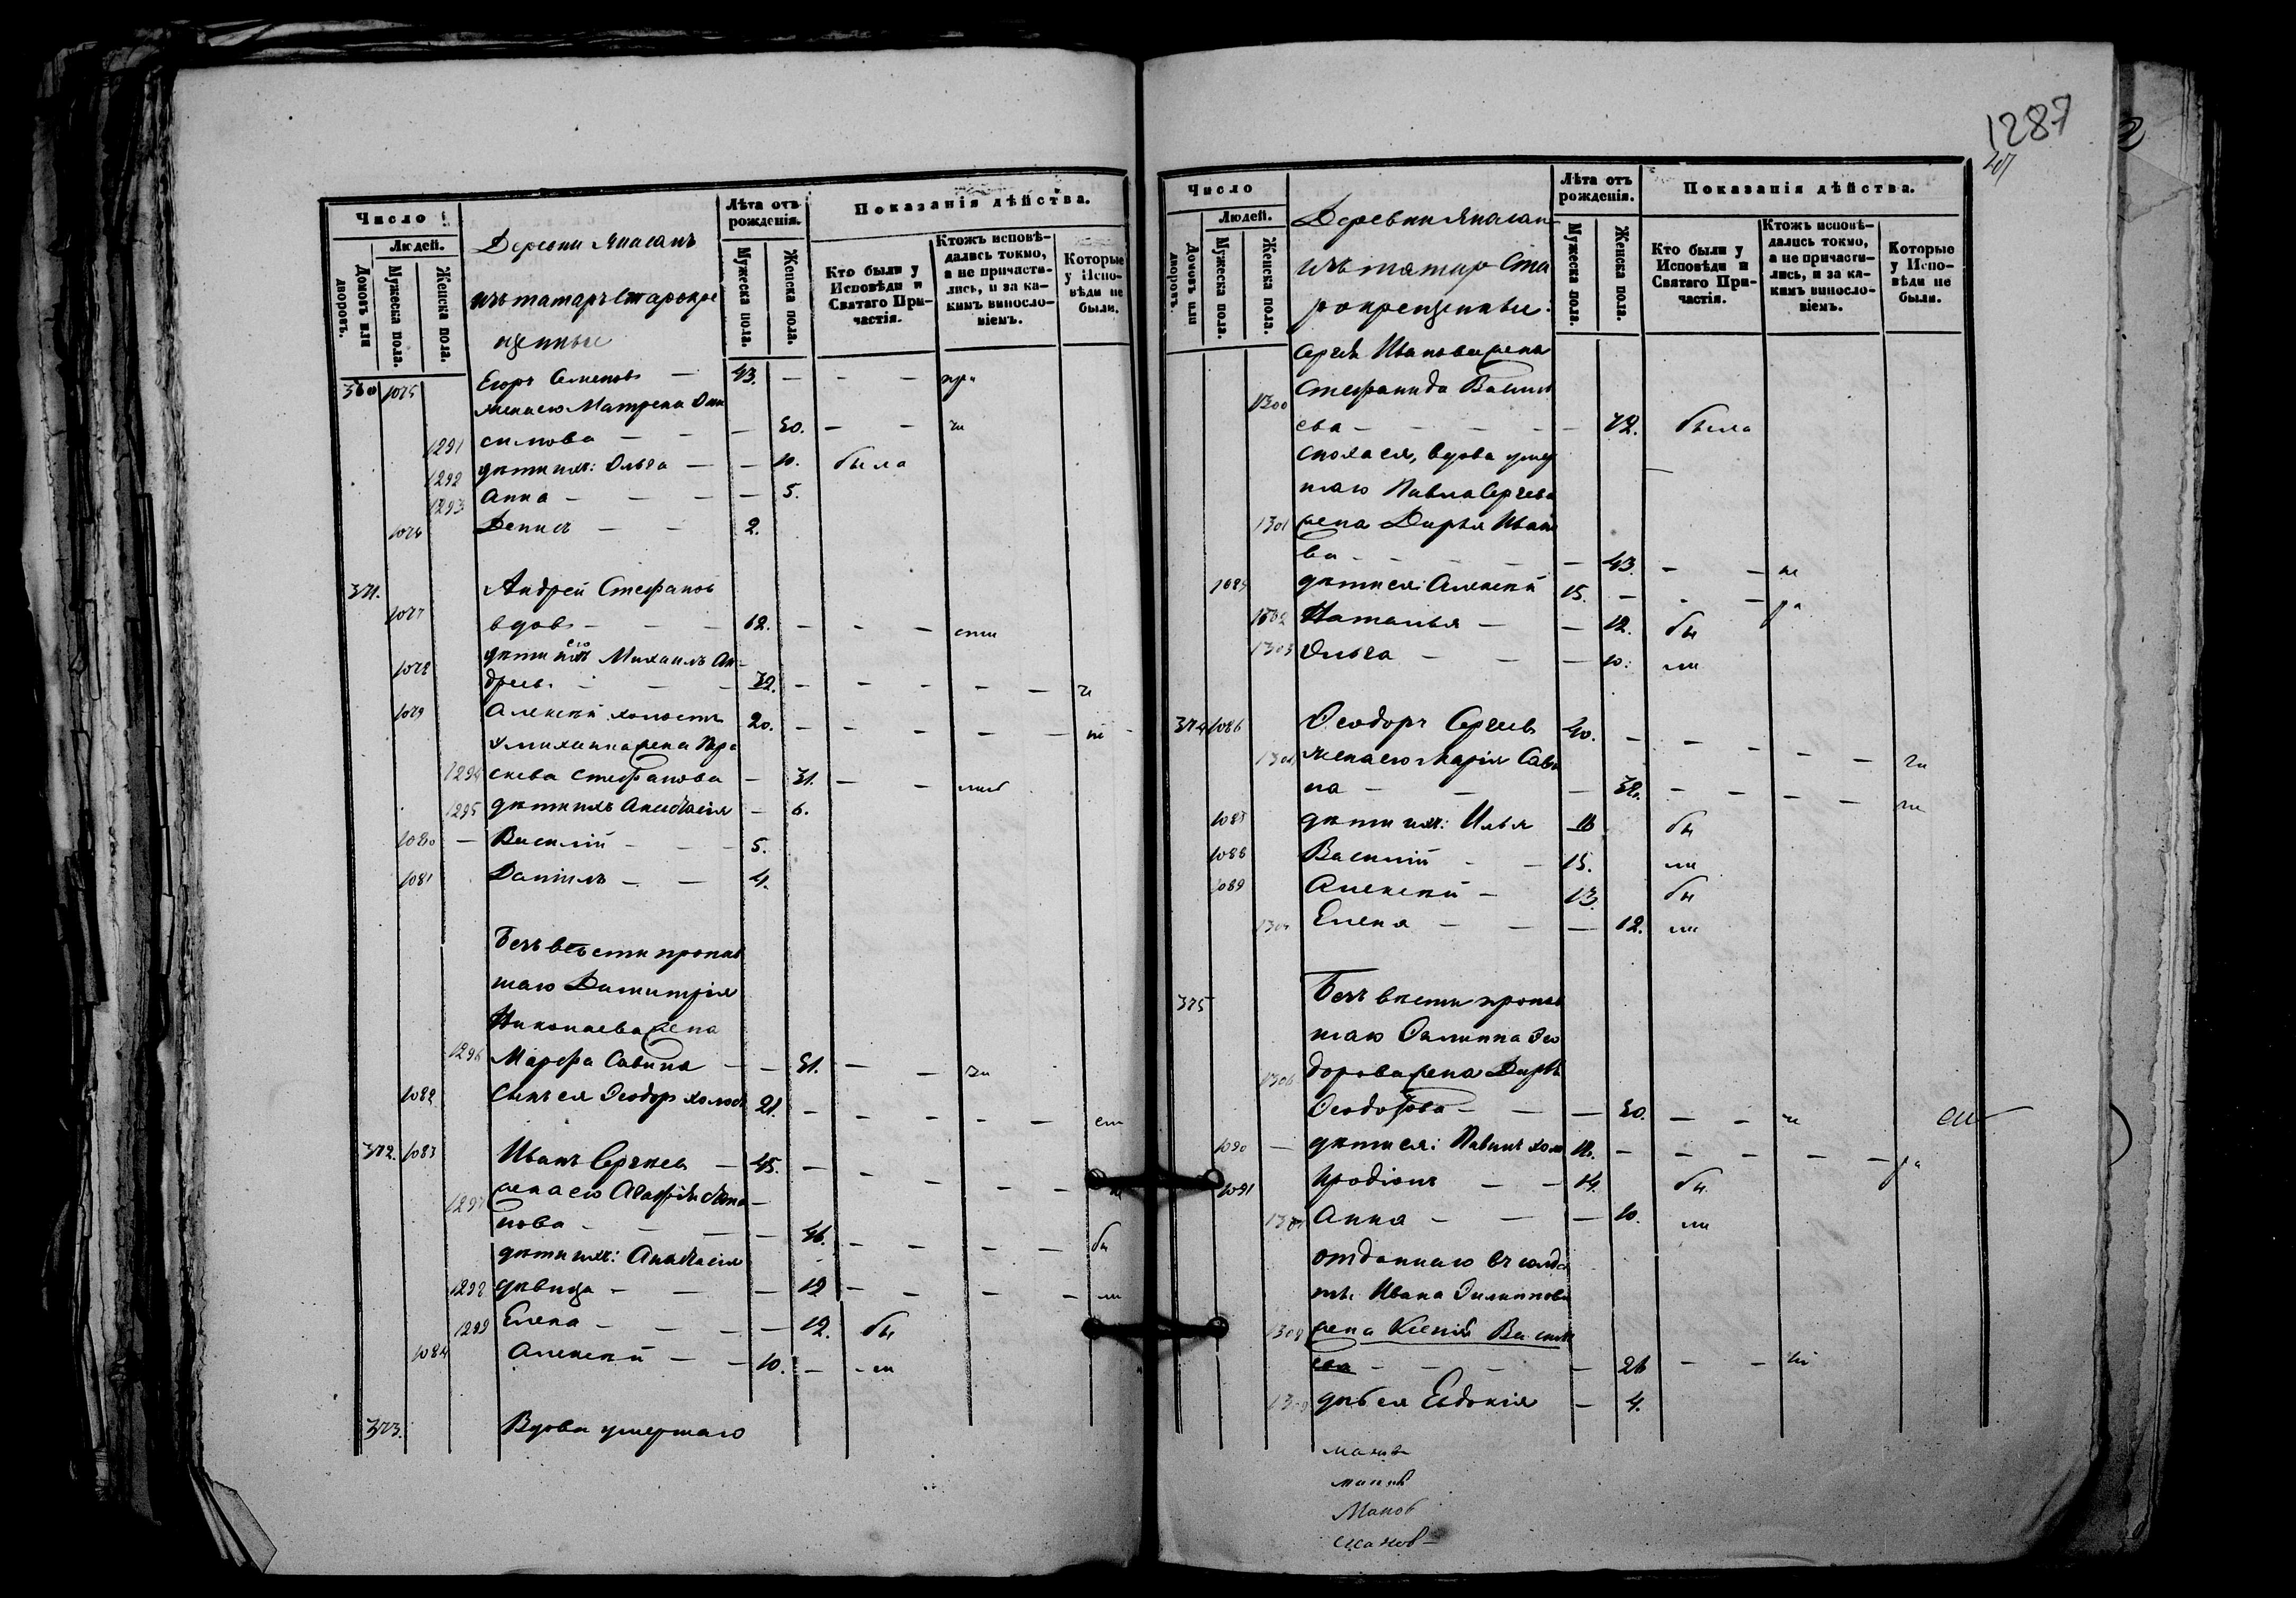 Число
Людей.
Домовъ или дворовъ.
Мужеска пола.
Женска пола.
Деревни Янасалъ
изъ татаръ старокре
щенные
Лѣта отъ рожденія.
Мужеска пола.
Женска пола.
Показанія дѣйства.
Кто были у Исповѣди и Святаго Причастія.
Ктожъ исповѣдались токмо, а не причастились, и за какимъ винословіемъ.
Которые у Исповѣди не были.
1075 Егоръ Семеновъ — 43. — — —
жена его Матрена
1291 — — — 50. — —
1292 дѣти ихъ: Ольга — — 10. была
1293 Анна — — — — 5.
1076 Денисъ — — 2.
371. Андрей Стефановъ
1077 вдовъ — — — 62. — — —
1078 дѣти его Михаилъ Ан-
дреевъ — — — 32. — — — — —
1079 Алексѣй холостъ 20. — — — — —
у михаила жена Пра
1294 скева Стефанова — 31. — —
1295 дѣти ихъ Анастасія — 6.
1080 — Василій — — — 5.
1081 Даніилъ — — 4.
Безъ вѣсти пропав
шаго Димитрія
Николаева жена
1296 Марфа Савина — — 51. — —
1082 сынъ ея Ѳеодоръ холост 21. — — — — —
372. 1083 Иванъ Сергѣевъ — 45. — — — — —
1297 жена его Агафія
нова — — — — 46. — — — —
дѣти ихъ: Анастасія
1298 дѣвица — — — 19 — — — —
1299 Елена — — — — 12. бы
1084 Алексѣй — — 10. — — ли
373. Вдова умершаго
1287
Число
Людей.
Домовъ или дворовъ.
Мужеска пола.
Женска пола.
Деревни Янасал
изъ татаръ Ста
рокрещенные:
Лѣта отъ рожденія.
Мужеска пола.
Женска пола.
Показанія дѣйства.
Кто были у Исповѣди и Святаго Причастія.
Ктожъ исповѣдались токмо, а не причастились, и за какимъ винословіемъ.
Которые у Исповѣди не были.
Сергѣя Иванова жена
1300 Стефанида Василь
ева — — — — — 72. была
сноха ея, вдова умер
шаго Павла Сергѣева
1301 жена Дарья Ивано
ва — — — — 43. — —
1085 дѣти ея: Алексѣй 15. — — —
1302 Наталья — — 12. бы
1303 Ольга — — — 10. ли
374 1086 Ѳеодоръ Сергѣевъ 40. — — — — —
жена его Марія Сави
на — — — — — — —
1087 дѣти ихъ: Илья бы
1088 Василій — — 15. ли
1089 Алексѣй — 13. бы
Елена — — — 12. ли
375 Безъ вѣсти пропав
шаго Филиппа Ѳео
1306 дорова жена Дарья
Ѳеодорова — — — 50. — —
1090 — дѣти ея: Павелъ хол — — — — —
1091 Иродіонъ — — 14. бы
Анна — — — 10. ли
отданнаго въ солда
ты Ивана Филиппова
1308 жена Ксенія Василь
ева — — — — 26 — —
дочь ея Евдокія — 4.